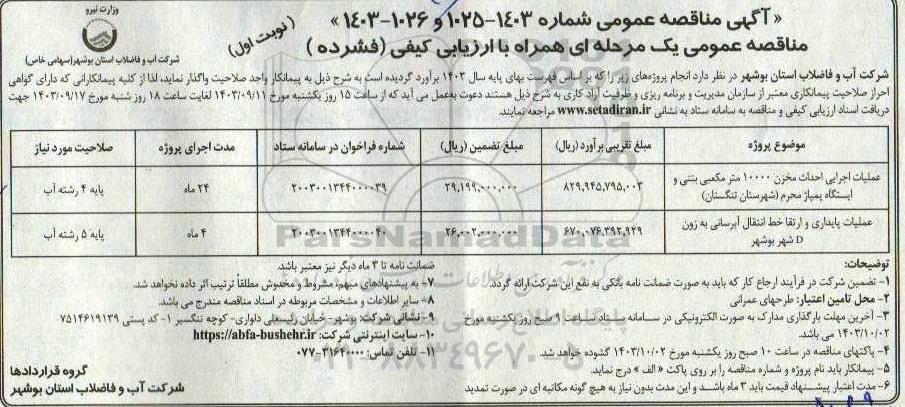 وزارت نیرو
شرکت آب و فاضلاب استان بوشهر(سهامی خاص)
« آگهی مناقصه عمومی شماره ۱۴۰۳-۱۰۲۵ و ۱۰۲۶-۱۴۰۳ »
( نوبت اول )
مناقصه عمومی یک مرحله ای همراه با ارزیابی کیفی (فشرده )
شرکت آب و فاضلاب استان بوشهر در نظر دارد انجام پروژه‌های زیر را که بر اساس فهرست بهای پایه سال ۱۴۰۳ برآورد گردیده است به شرح ذیل به پیمانکار واجد صلاحیت واگذار نماید، لذا از کلیه پیمانکارانی که دارای گواهی
احراز صلاحیت پیمانکاری معتبر از سازمان مدیریت و برنامه ریزی و ظرفیت آزاد کاری به شرح ذیل هستند دعوت به‌عمل می آید که از ساعت ۱۵ روز یکشنبه مورخ ۱۴۰۳/۰۹/۱۱ لغایت ساعت ۱۸ روز شنبه مورخ ۱۴۰۳/۰۹/۱۷ جهت
دریافت اسناد ارزیابی کیفی و مناقصه به سامانه ستاد به نشانی www.setadiran.ir مراجعه نمایند.
موضوع پروژه | مبلغ تقریبی برآورد (ریال) | مبلغ تضمین (ریال) | شماره فراخوان در سامانه ستاد | مدت اجرای پروژه | صلاحیت مورد نیاز
عملیات اجرایی احداث مخزن ۱۰۰۰۰ متر مکعبی بتنی و
ایستگاه پمپاژ محرم (شهرستان تنگستان) | ۸۲۹,۹۴۵,۷۹۵,۰۰۳ | ۲۹,۱۹۹,۰۰۰,۰۰۰ | ۲۰۰۳۰۰۱۳۴۴۰۰۰۰۳۹ | ۲۴ ماه | پایه ۴ رشته آب
عملیات پایداری و ارتقا خط انتقال آبرسانی به زون
D شهر بوشهر | ۶۷۰,۰۷۶,۳۹۲,۹۲۹ | ۲۶,۰۰۲,۰۰۰,۰۰۰ | ۲۰۰۳۰۰۱۳۴۴۰۰۰۰۴۰ | ۴ ماه | پایه ۵ رشته آب
ParsNamadData
توضیحات:
۱- تضمین شرکت در فرآیند ارجاع کار که باید به صورت ضمانت نامه بانکی به نفع این شرکت ارائه گردد.
۲- محل تامین اعتبار: طرحهای عمرانی
۳- آخرین مهلت بارگذاری مدارک به صورت الکترونیکی در سامانه ستاد ساعت ۹ صبح روز یکشنبه مورخ
۱۴۰۳/۱۰/۰۲ می باشد.
۴- پاکتهای مناقصه در ساعت ۱۰ صبح روز یکشنبه مورخ ۱۴۰۳/۱۰/۰۲ گشوده خواهد شد.
۵- پیمانکار باید نام پروژه و شماره مناقصه را بر روی پاکت « الف » درج نماید.
۶- مدت اعتبار پیشنهاد قیمت باید ۳ ماه باشد و این مدت بدون نیاز به هیچ گونه مکاتبه ای در صورت تمدید
ضمانت نامه تا ۳ ماه دیگر نیز معتبر باشد.
۷- به پیشنهادهای مبهم، مشروط و مخدوش مطلقاً ترتیب اثر داده نخواهد شد.
۸- سایر اطلاعات و مشخصات مربوطه در اسناد مناقصه مندرج می باشد.
۹- نشانی شرکت: بوشهر- خیابان رئیسعلی دلواری- کوچه تنگسیر ۱- کد پستی ۷۵۱۴۶۱۹۱۳۹
۱۰- سایت اینترنتی شرکت: https://abfa-bushehr.ir
۱۱- تلفن تماس: ۳۱۶۴۰۰۰۰-۰۷۷
گروه قراردادها
شرکت آب و فاضلاب استان بوشهر